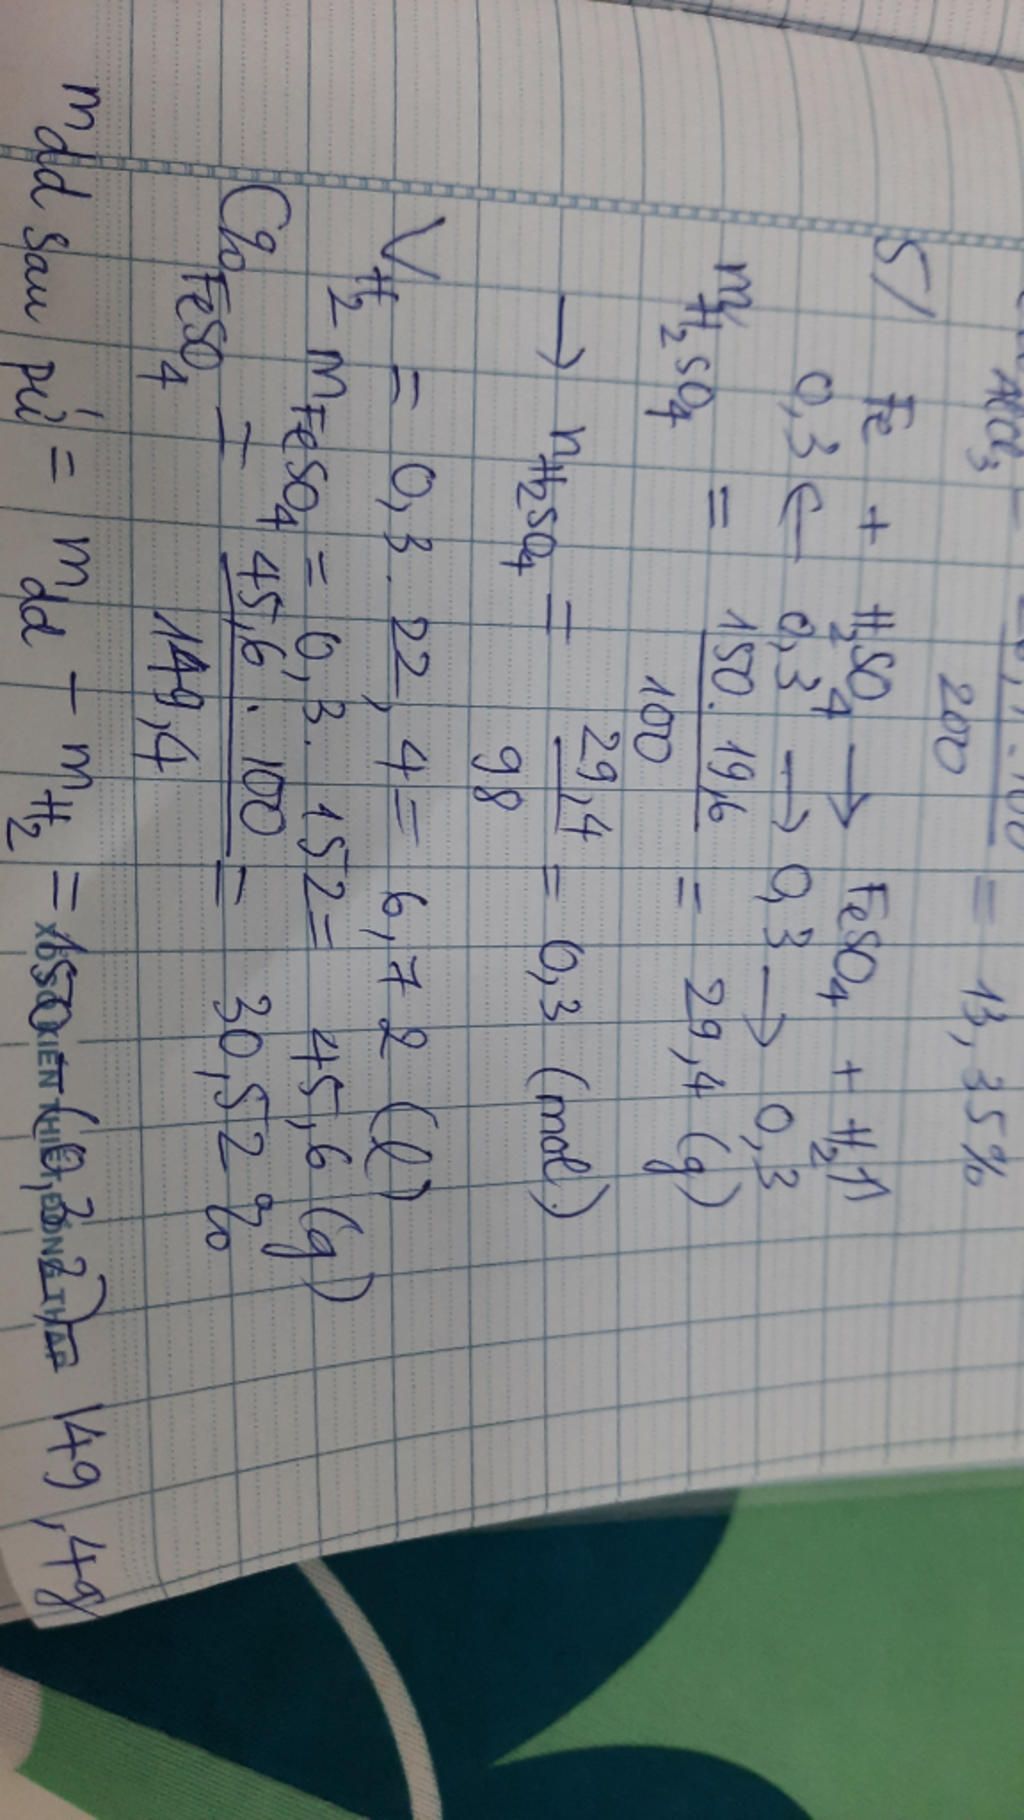 200
= 13,35%
5/ Fe + H2SO4 → FeSO4 + H2↑
0,3 ← 0,3 → 0,3 → 0,3
mH2SO4 = 150.19,6 / 100 = 29,4 (g)
→ nH2SO4 = 29,4 / 98 = 0,3 (mol)
VH2 = 0,3. 22,4 = 6,72 (l)
mFeSO4 = 0,3. 152 = 45,6 (g)
C%FeSO4 = 45,6.100 / 149,4 = 30,52%
mdd sau pứ = mdd - mH2 = 150 - (0,3.2) = 149,4g